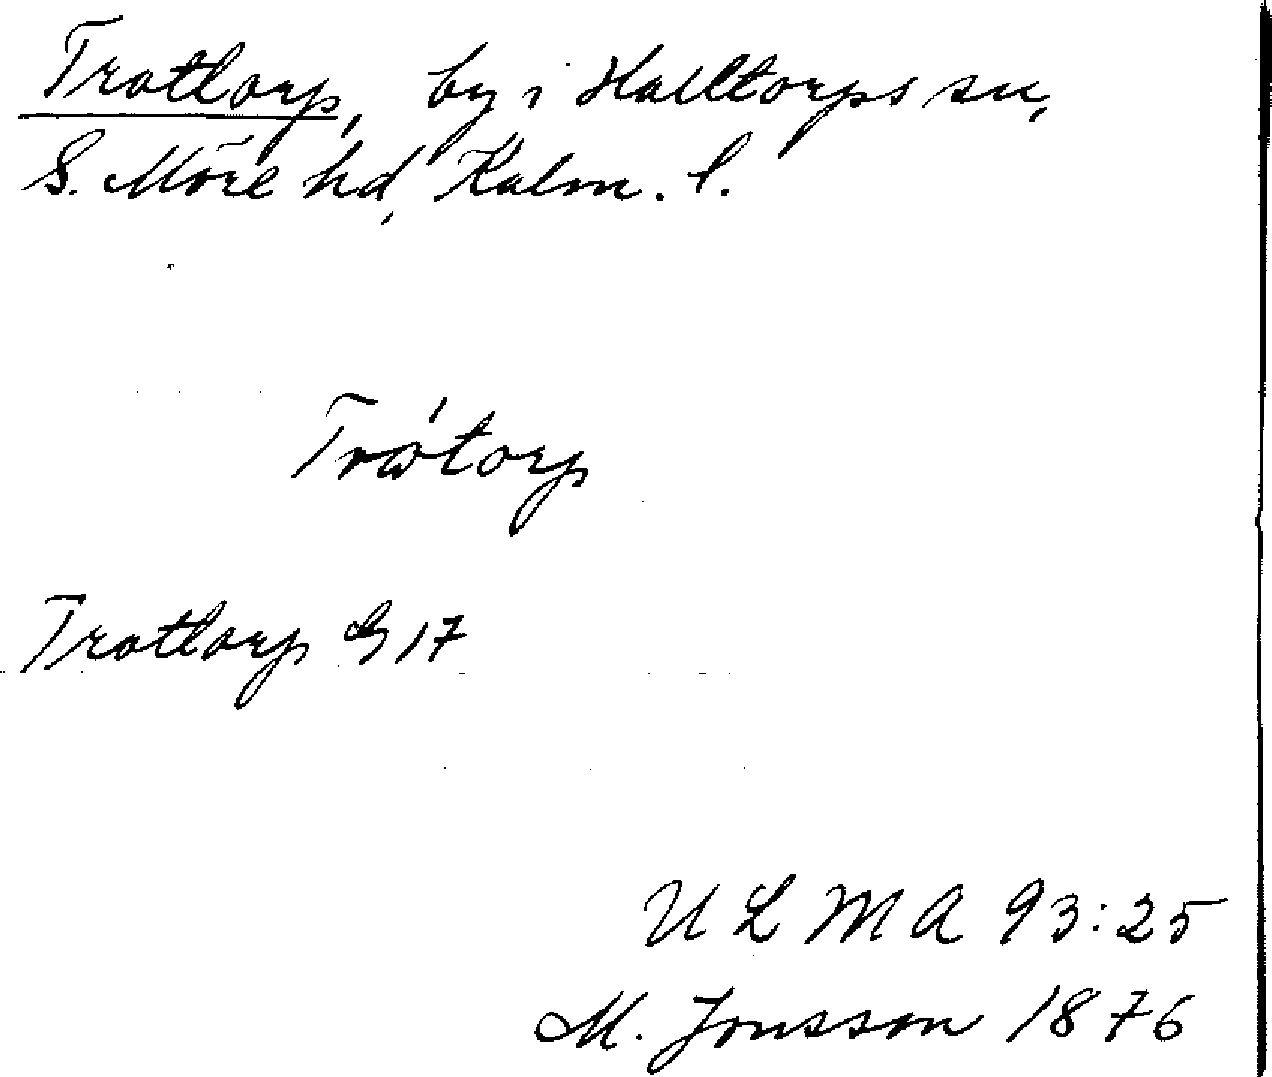 Trottorp, by i Halltorps sn,
S. Möre hd, Kalm. l.
Trótorp
Trottorp G 17
ULMA 93:25
M. Jonsson 1876